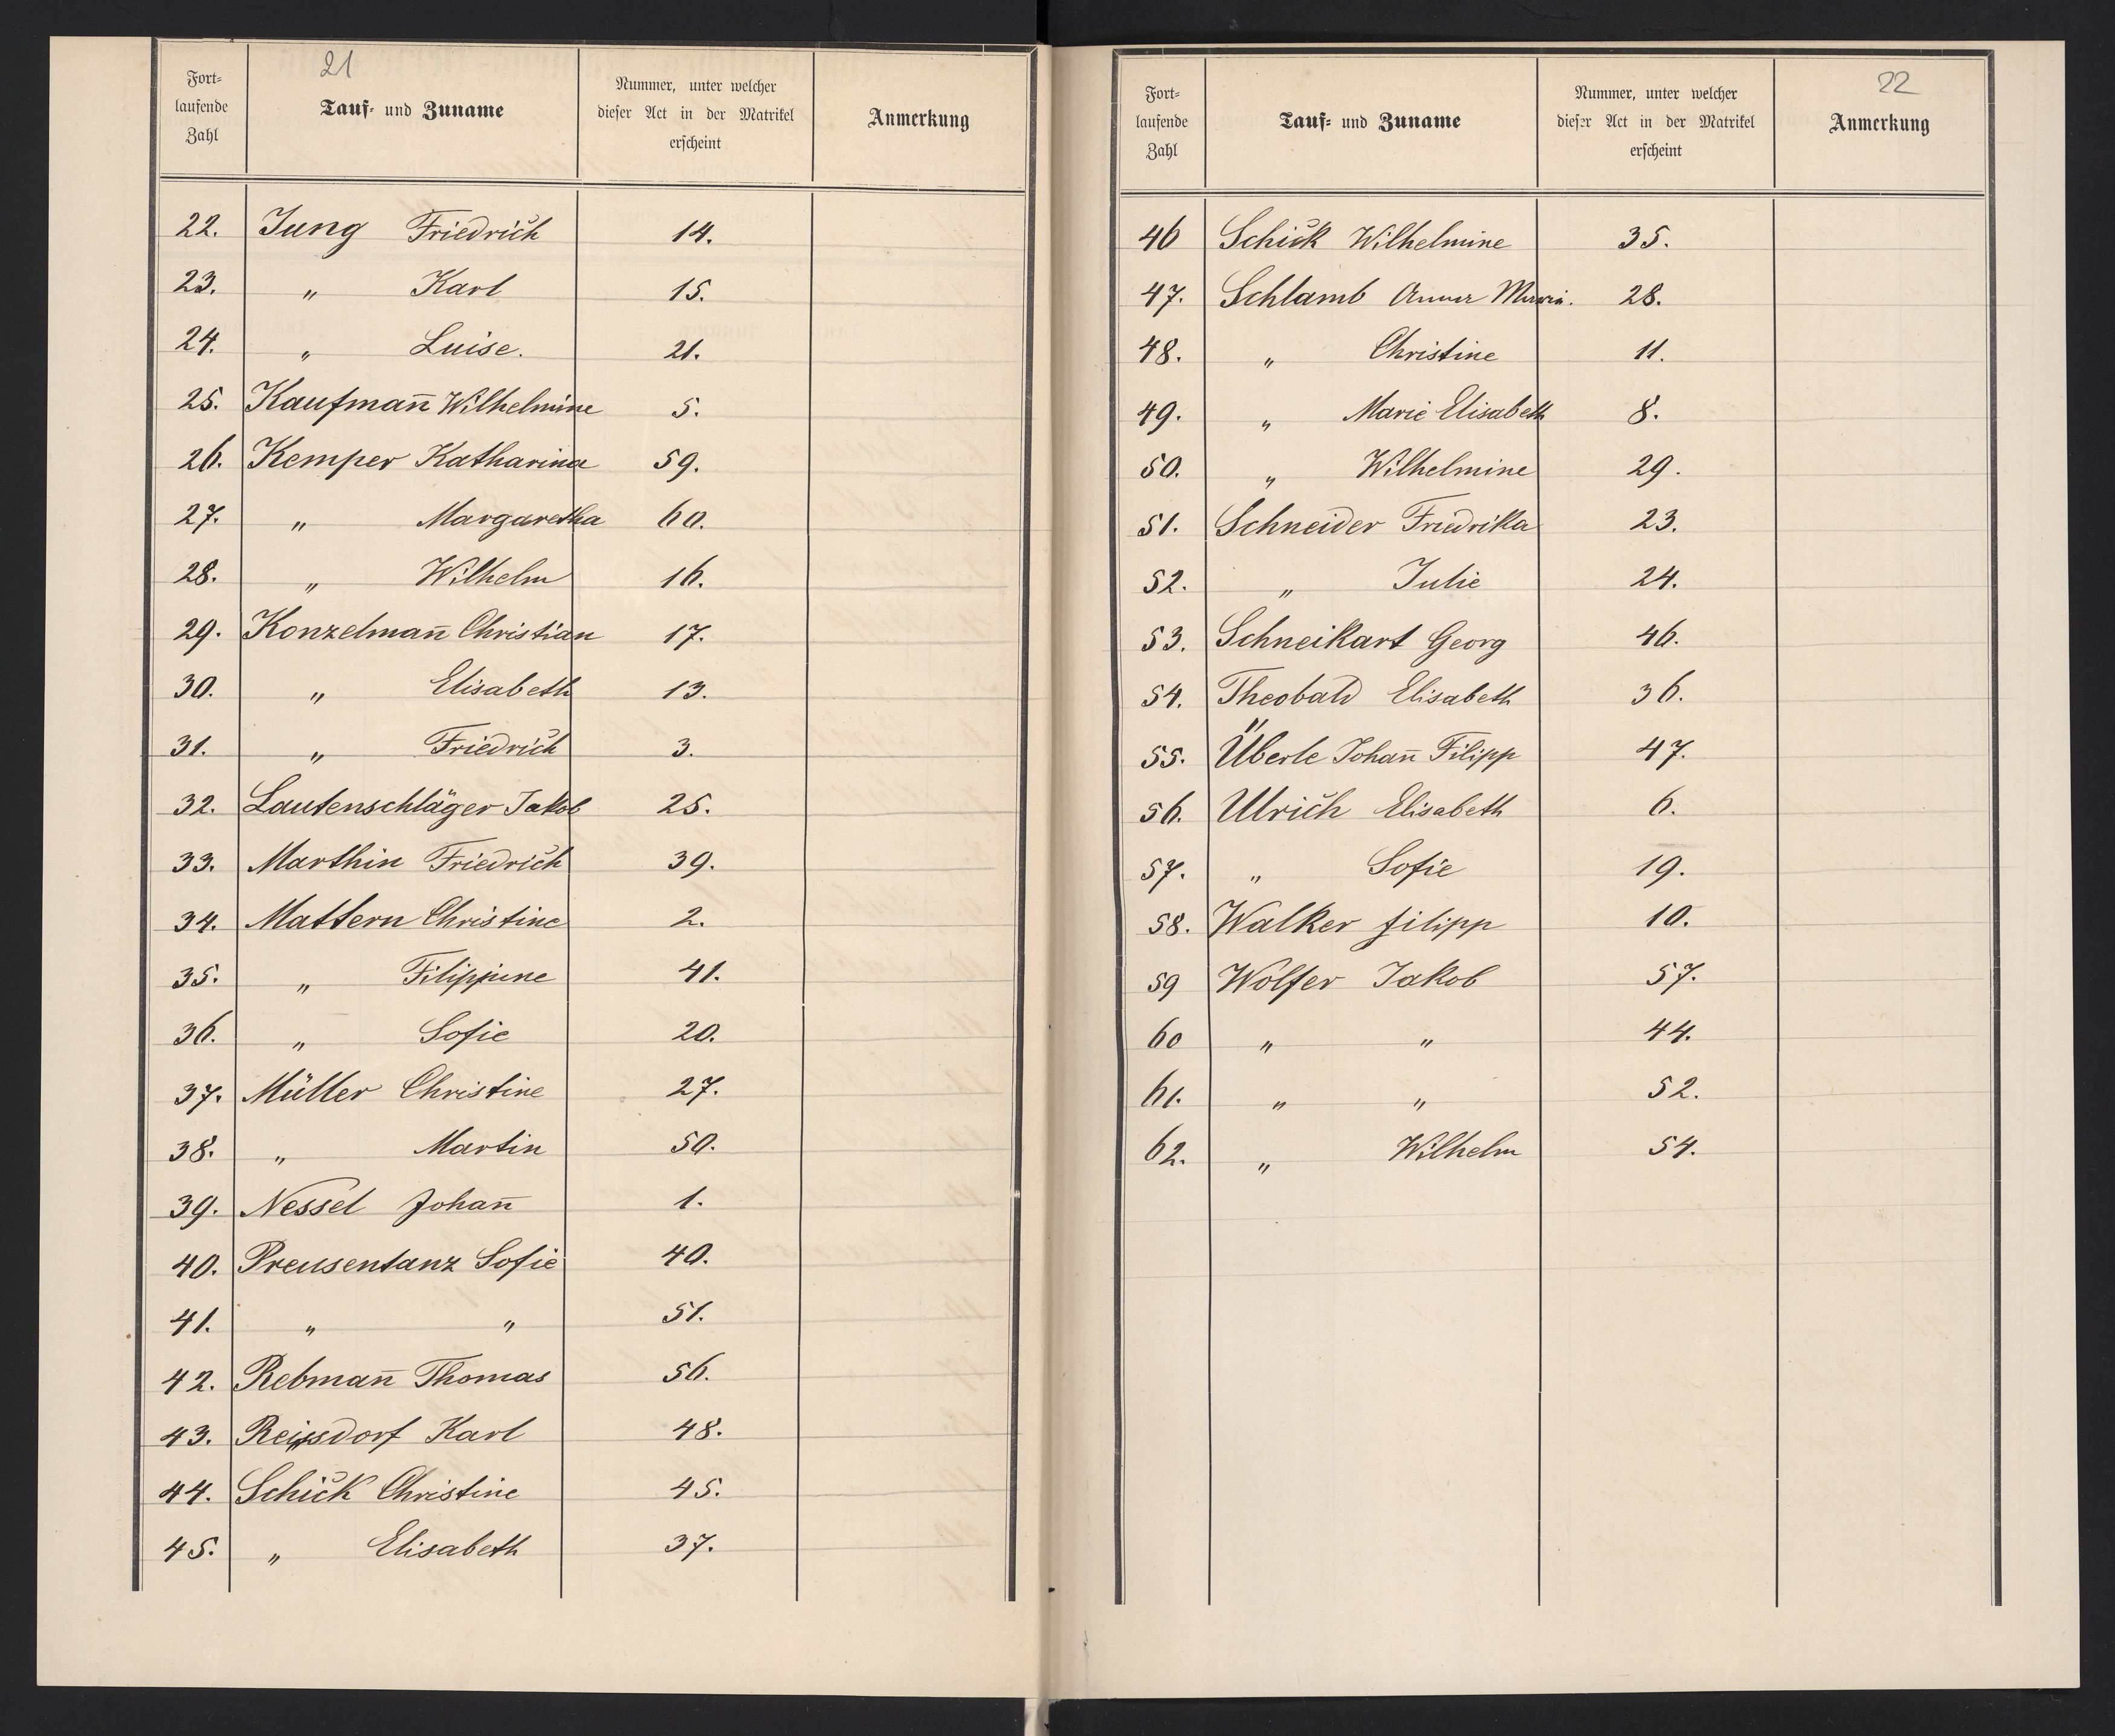 21
Fort-
laufende
Zahl
Tauf- und Zuname
Nummer, unter welcher
dieser Act in der Matrikel
erscheint
Anmerkung
22. Jung Friedrich 14.
23. „ Karl 15.
24. „ Luise. 21.
25. Kaufmañ Wilhelmine 5.
26. Kemper Katharina 59.
27. „ Margaretha 60.
28. „ Wilhelm 16.
29. Konzelmañ Christian 17.
30. „ Elisabeth 13.
31. „ Friedrich 3.
32. Lautenschläger Jakob 25.
33. Marthin Friedrich 39.
34. Mattern Christine 2.
35. „ Filippine 41.
36. „ Sofie 20.
37. Müller Christine 27.
38. „ Martin 50.
39. Nessel Johañ 1.
40. Preusentanz Sofie 40.
41. „ „ 51.
42. Rebmañ Thomas 56.
43. Karl 48.
44. Schick Christine 45.
45. „ Elisabeth 37.
22
Fort-
laufende
Zahl
Tauf- und Zuname
Nummer, unter welcher
dieser Act in der Matrikel
erscheint
Anmerkung
46 Schick Wilhelmine 35.
47. Schlamb Anna Maria. 28.
48. „ Christine 11.
49. „ Marie Elisabeth 8.
50. „ Wilhelmine 29.
51. Schneider Friedrika 23.
52. „ Julie 24.
53. Schneikart Georg 46.
54. Theobald Elisabeth 36.
55. Überle Johañ Filipp 47.
56. Ulrich Elisabeth 6.
57. „ Sofie 19.
58. Walker Filipp 10.
59 Wolfer Jakob 57.
60 „ „ 44.
61. „ „ 52.
62. „ Wilhelm 54.